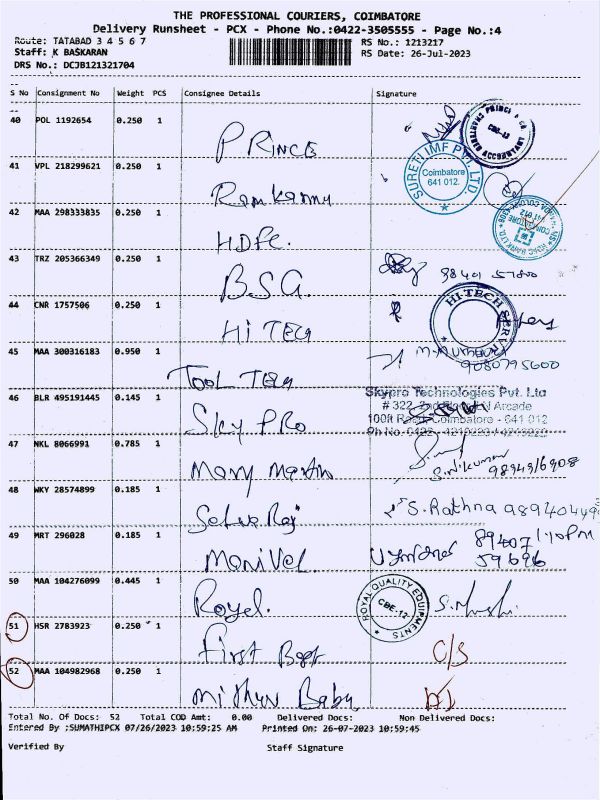 THE PROFESSIONAL COURIERS, COIMBATORE
Delivery Runsheet - PCX - Phone No.:0422-3505555 - Page No.:4
Route: TATABAD 3 4 5 6 7 RS No.: 1213217
Staff: K BASKARAN RS Date: 26-Jul-2023
DRS No.: DCJB121321704
S No Consignment No Weight PCS Consignee Details Signature
40 POL 1192654 0.250 1 PRINCE
41 VPL 218299621 0.250 1 Ramkannu SURETI IMF PVT. LTD. Coimbatore 641 012.
42 MAA 298333835 0.250 1 HDFC.
43 TRZ 205366349 0.250 1 BSG. 98401 57800
44 CNR 1757506 0.250 1 Hi TECH HI TECH SERV
45 MAA 300316183 0.950 1 TOOL TECH 9080795600
46 BLR 495191445 0.145 1 SKY PRO Skypro Technologies Pvt. Ltd
# 322, 2nd Floor Arcade
100ft Road, Coimbatore - 641 012
Ph No. 0422 -
47 NKL 8066991 0.785 1 Mary Martin S.nikumar
48 WKY 28574899 0.185 1 Selva Raj S. Rathna 989404499
49 MRT 296028 0.185 1 Manivel 89407 1:10PM
59696
50 MAA 104276099 0.445 1 Royel. ROYAL QUALITY EQUIPMENTS CBE-12
51 HSR 2783923 0.250 1 First Beat C/S
52 MAA 104982968 0.250 1 Mithun Babu
Total No. Of Docs: 52 Total COD Amt: 0.00 Delivered Docs: Non Delivered Docs:
Entered By :SUMATHIPCX 07/26/2023 10:59:25 AM Printed On: 26-07-2023 10:59:45
Verified By Staff Signature